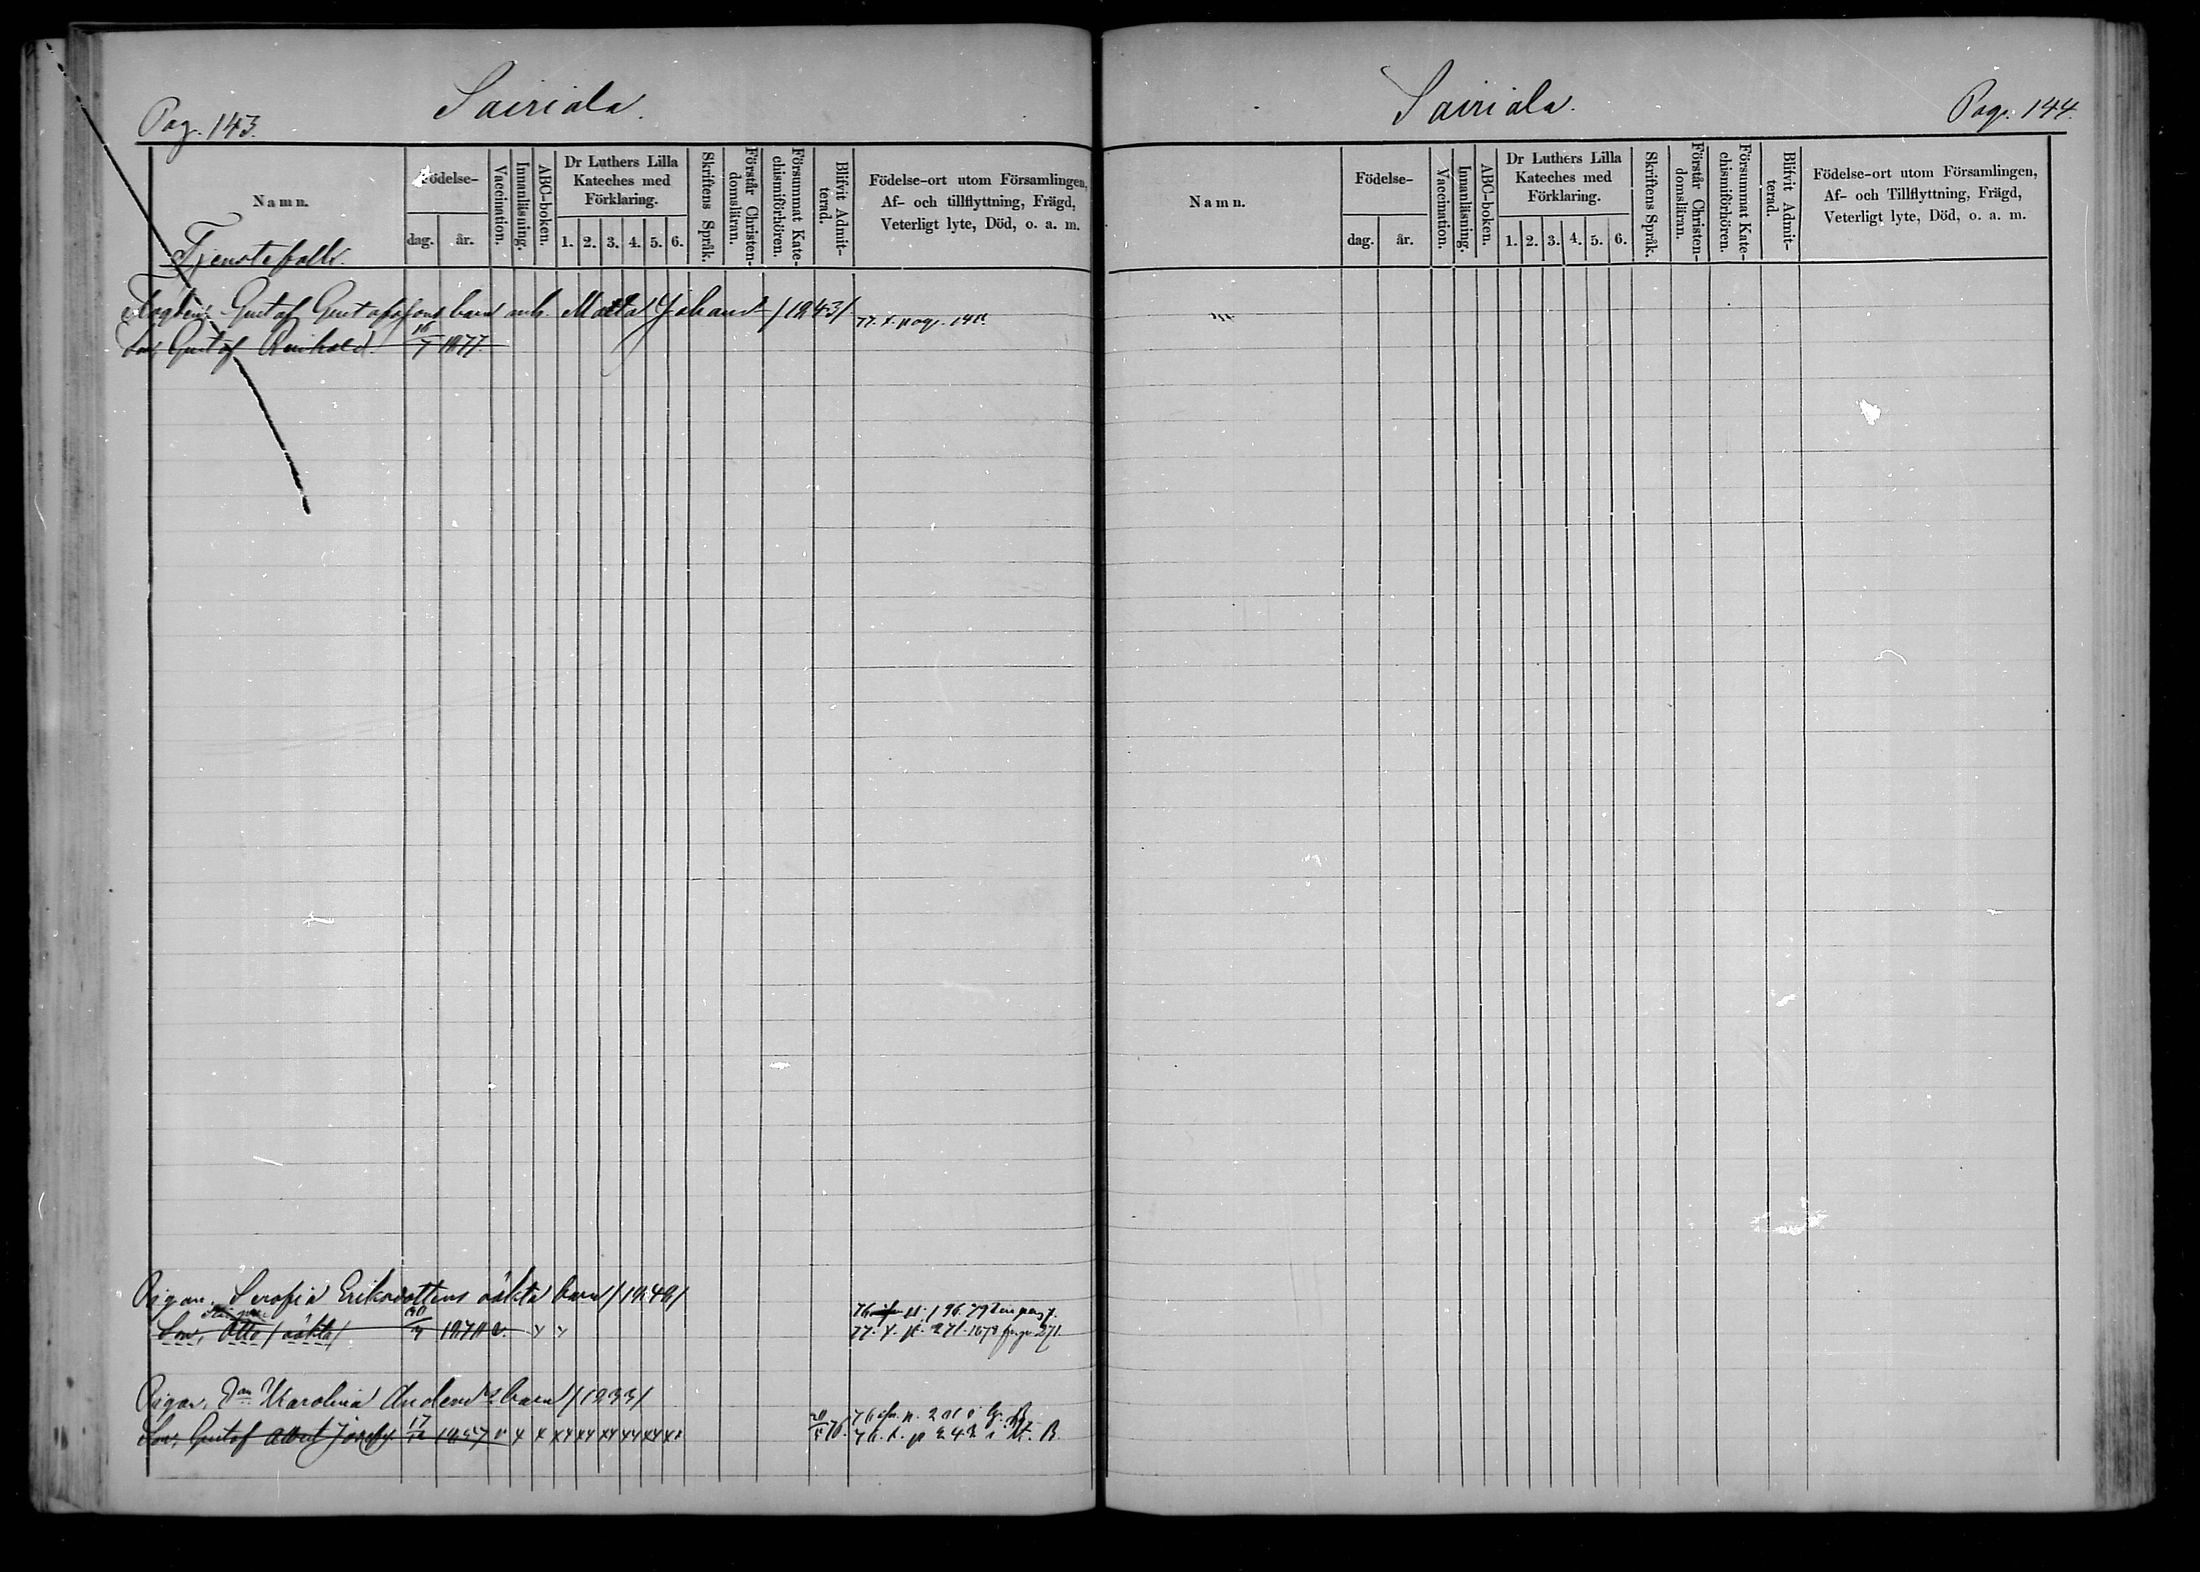 Pag. 143.
Sairiala.
Namn.
Födelse-
dag. år.
Vaccination.
Innanläsning.
ABC-boken.
Dr Luthers Lilla
Kateches med
Förklaring.
1. 2. 3. 4. 5. 6.
Skriftens Språk.
Förstår Christen-
domsläran.
Försummat Kate-
chismiförhören.
Blifvit Admit-
terad.
Födelse-ort utom Församlingen,
Af- och tillflyttning, Frägd,
Veterligt lyte, Död, o. a. m.
Tjenstefolk.
Gustaf Gustafssons barn Johansd /1843/
Son, Gustaf Reinhold. 1877.
Pigan, Serafia Eriksdotters oäkta barn /1849/
Son, Otto /oäkta/
Pigan, Karolina barn /1833/
Son, Gustaf Albert Josef 17 1857 v x x x4 x4 x4 x4 x4
Sairiala.
Pag. 144.
Namn.
Födelse-
dag. år.
Vaccination.
Innanläsning.
ABC-boken.
Dr Luthers Lilla
Kateches med
Förklaring.
1. 2. 3. 4. 5. 6.
Skriftens Språk.
Förstår Christen-
domsläran.
Försummat Kate-
chismiförhören.
Blifvit Admit-
terad.
Födelse-ort utom Församlingen,
Af- och Tillflyttning, Frägd,
Veterligt lyte, Död, o. a. m.